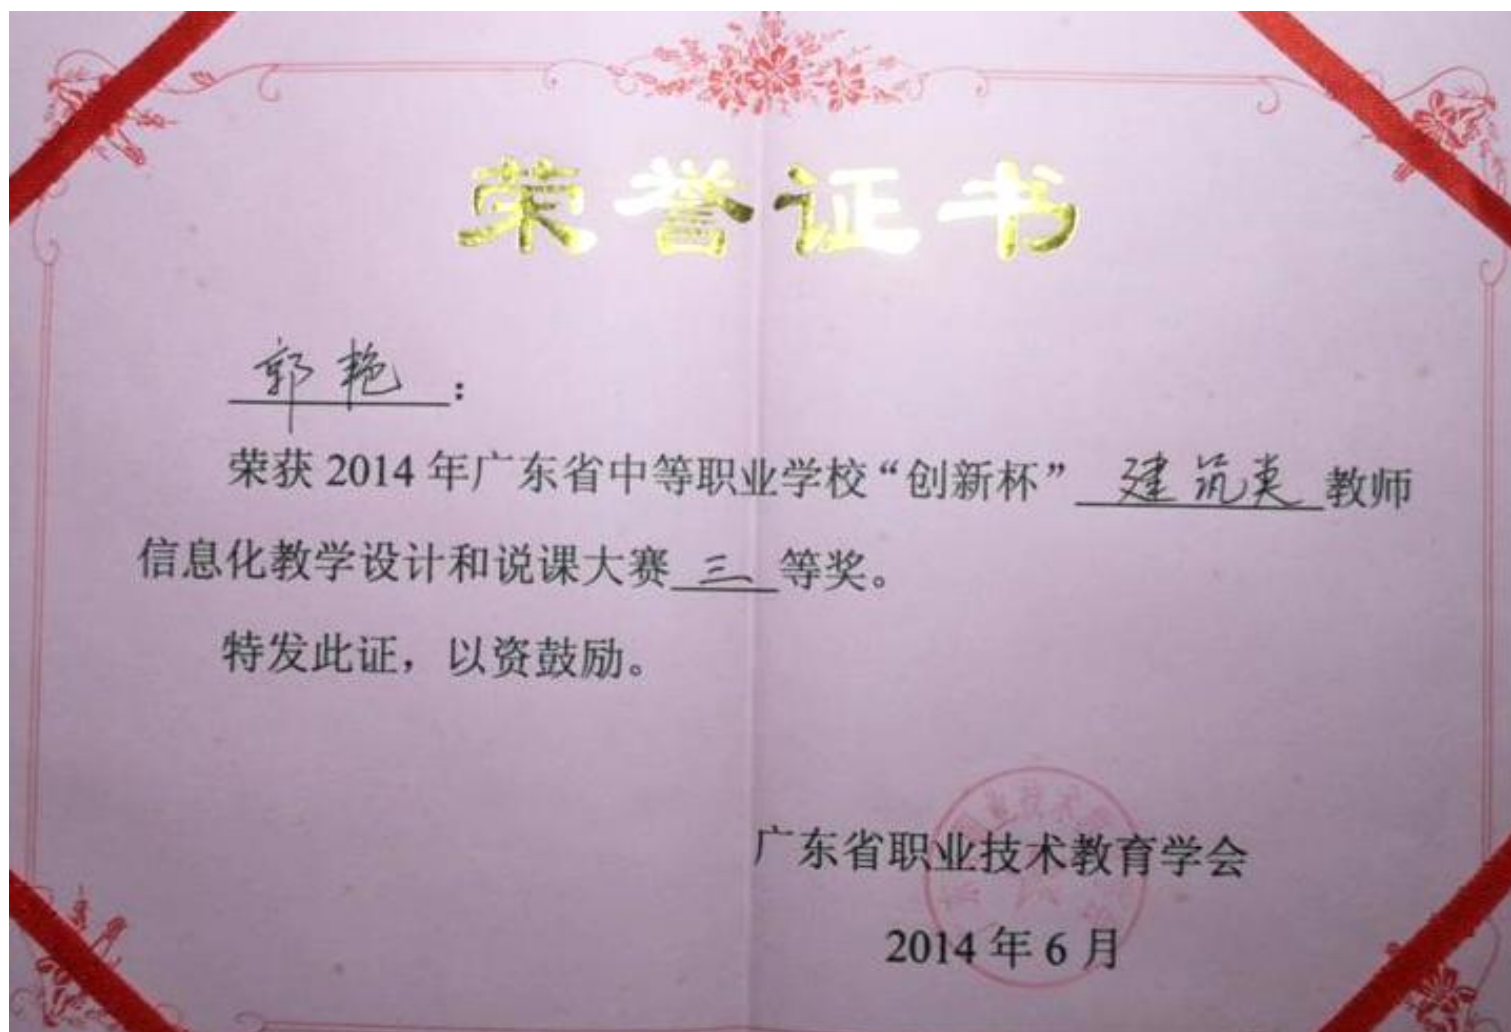 荣誉证书
郭艳:
荣获 2014 年广东省中等职业学校“创新杯” 建筑类 教师
信息化教学设计和说课大赛 三 等奖。
特发此证，以资鼓励。
广东省职业技术教育学会
2014 年 6 月